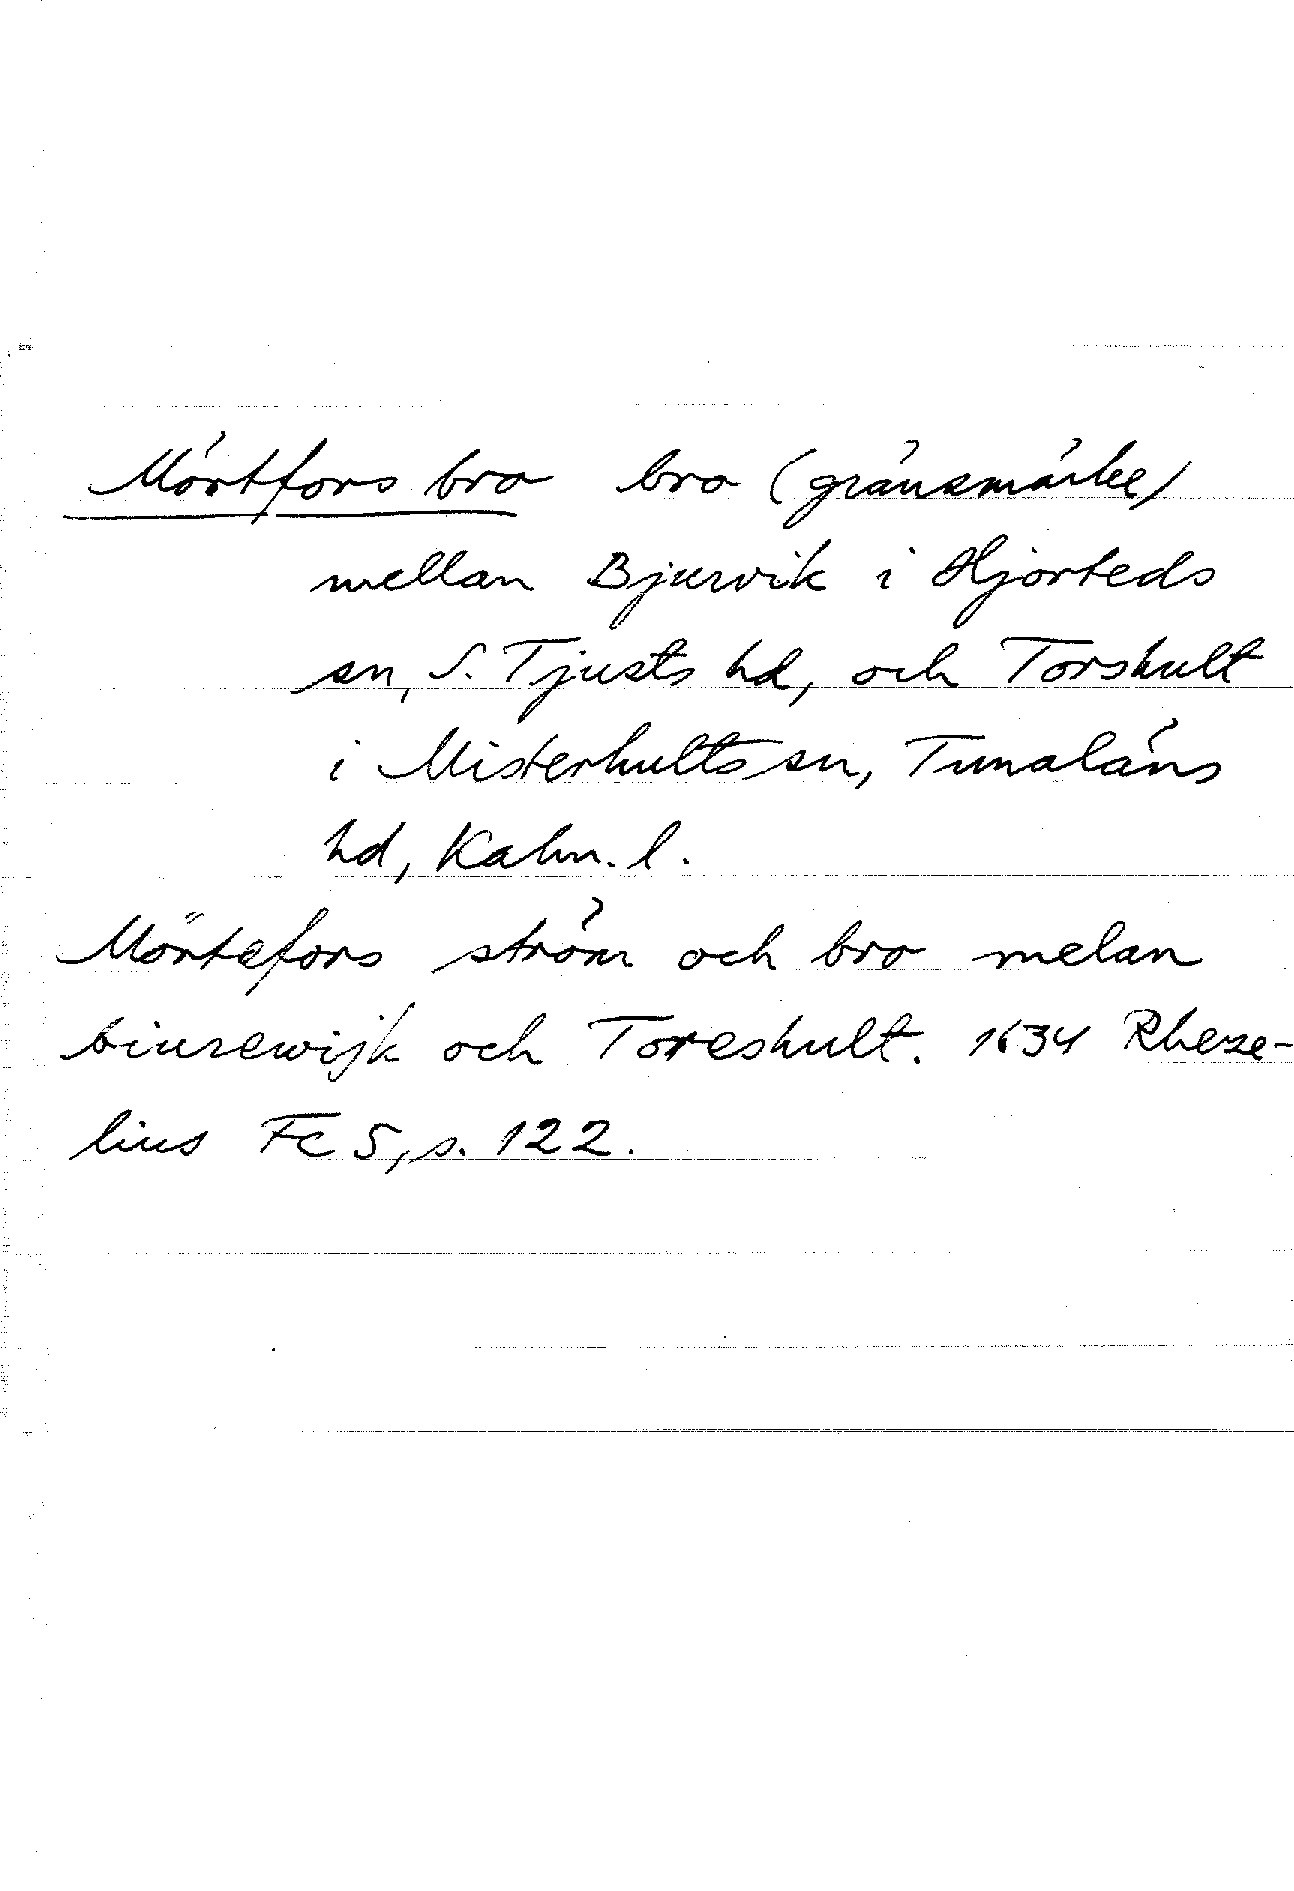 Mörtfors bro bro (gränsmärke)
mellan Bjurvik i Hjorteds
sn, S. Tjusts hd, och Torshult
i Misterhults sn, Tunaläns
hd, Kalm. l.
Mörtefors ström och bro melan
biurewijk och Toreshult. 1634 Rheze-
lius Fc 5, s. 122.